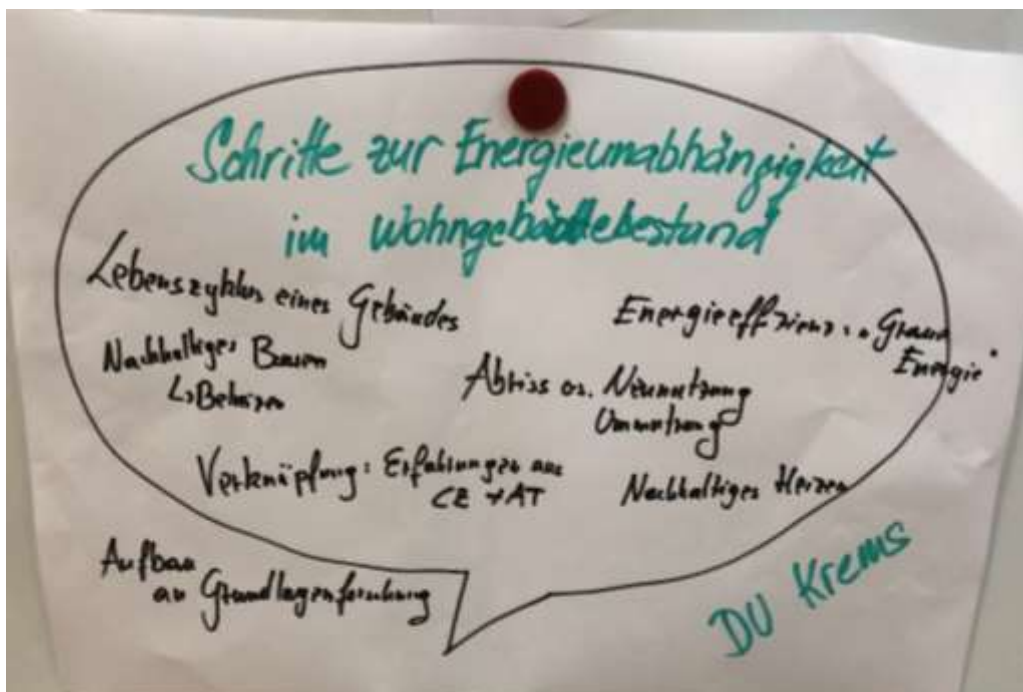 Schritte zur Energieunabhängigkeit
im Wohngebäudebestand
Lebenszyklus eines Gebäudes
Nachhaltiges Bauen
↳ Beheizen
Energieeffizienz : "Graue
Energie"
Abriss vs. Neunutzung
Umnutzung
Verknüpfung: Erfahrungen aus
CZ + AT
Nachhaltiges Heizen
Aufbau
an Grundlagenforschung
DU Krems